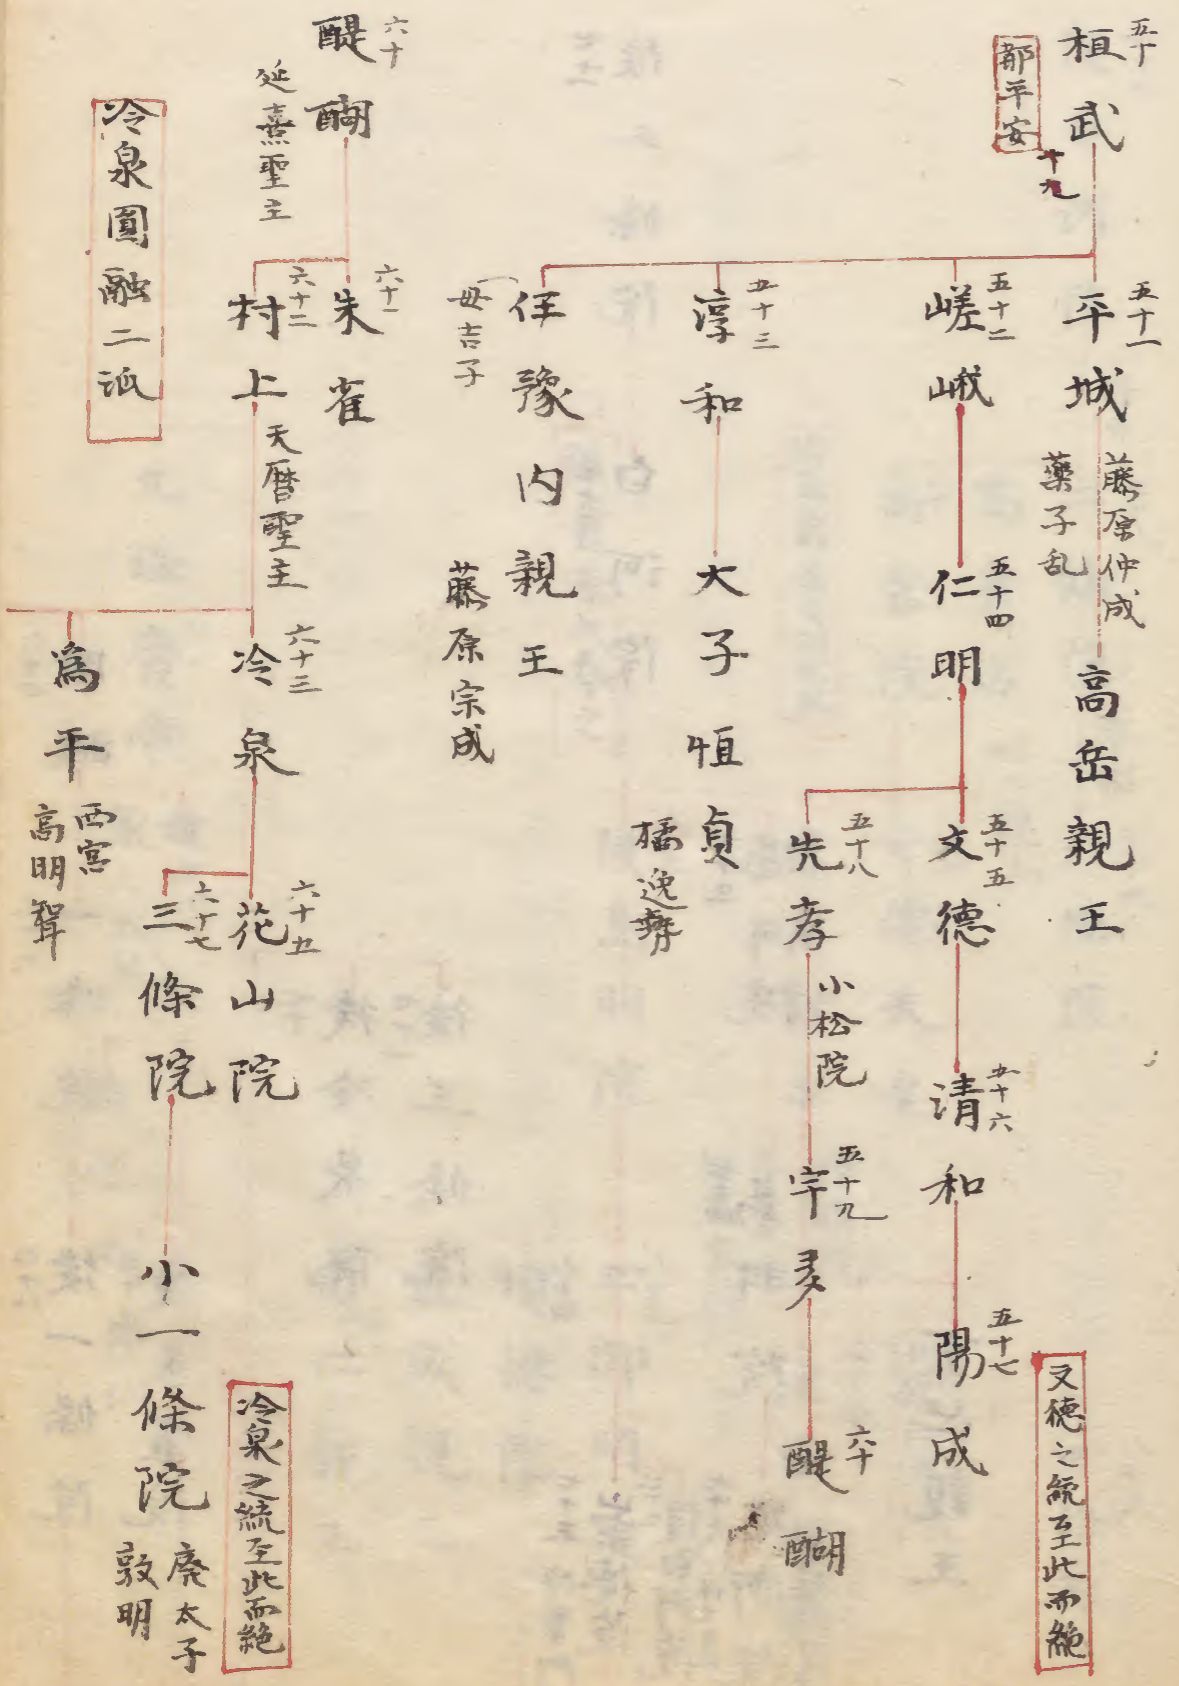 五十
桓武
都平安
十九
五十一
平城
藤原仲成
藥子乱
高岳親王
五十二
嵯峨
五十四
仁明
五十五
文德
五十六
清和
五十七
陽成
文德之統至此而絶
五十八
光孝
小松院
五十九
宇多
六十
醍醐
五十三
淳和
太子恒貞
橘逸勢
伊豫内親王
母吉子
藤原宗成
六十
醍醐
延熹聖主
六十一
朱雀
六十二
村上
天曆聖主
冷泉圓融二派
六十三
冷泉
六十五
花山院
六十七
三條院
小一條院
廃太子
敦明
冷泉之統至此而絶
爲平
西宮
高明聟